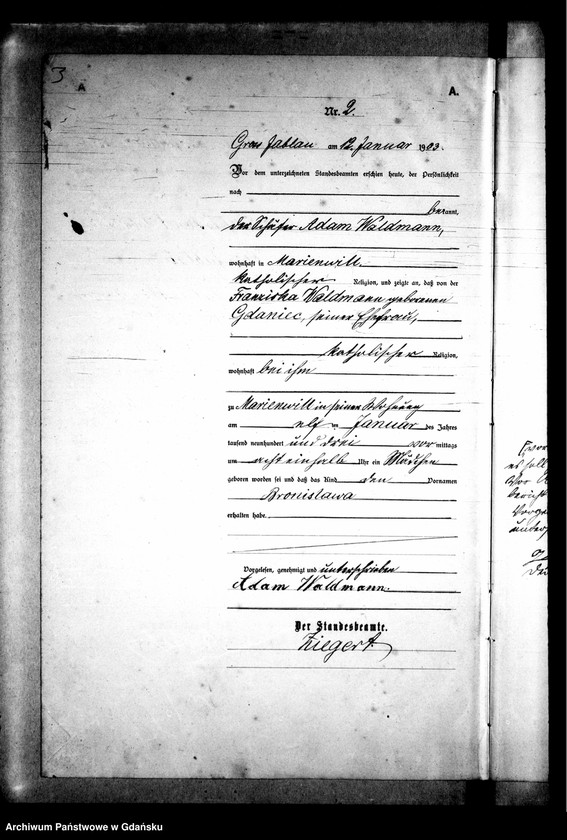 3
A
A.
Nr. 2.
Gross Jablau am 12. Januar 1903.
Vor dem unterzeichneten Standesbeamten erschien heute, der Persönlichkeit
nach
bekannt,
der Schäfer Adam Waldmann,
wohnhaft in Marienwill
katholischer Religion, und zeigte an, daß von der
Franziska Waldmann geborenen
Gdaniec, seiner Ehefrau,
katholischer Religion,
wohnhaft bei ihm
zu Marienwill in seiner Wohnung
am elf ten Januar des Jahres
tausend neunhundert und drei vor mittags
um acht einhalb Uhr ein Mädchen
geboren worden sei und daß das Kind den Vornamen
Bronislawa
erhalten habe.
Vorgelesen, genehmigt und unterschrieben
Adam Waldmann.
Der Standesbeamte.
Ziegert
Archiwum Państwowe w Gdańsku